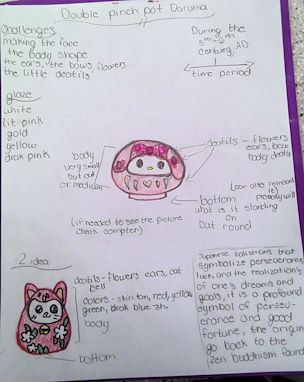 Double pinch pot Daruma
Challenges
making the face
the body shape
the ears, the bows, flowers
the little deatils
During the
5th-6th
century, AD
time period
glaze
white
lit pink
gold
yellow
drak pink
body
very small
but cut
or medium
deatils - flowers
ears, bow
body deatils
(can also remove it)
bottom
what is it standing
on
bat round
(if needed to see the picture
cheak compter)
2 idea
deatils - flowers ears, cat
bell
colors - skin ton, red, yellow
green, brok blue-sh
body
bottom
Japanese talismans that
symbolize perseverance
luck, and the realizations
of one's dreams and
goals, it is a profound
symbol of persev-
erance and good
fortune, the origins
go back to the
zen buddhism found